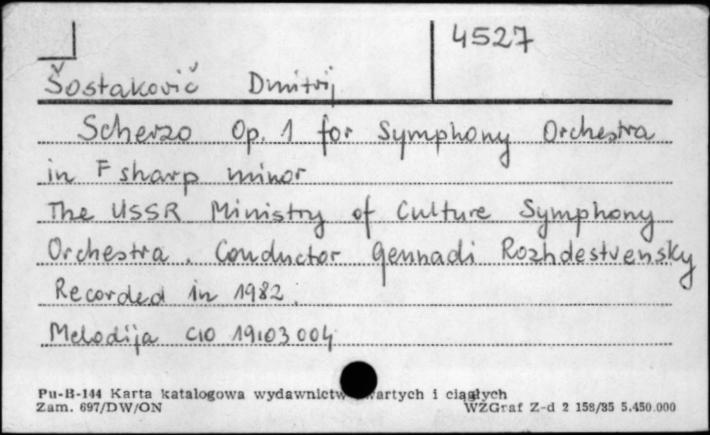 4527
Šostakovič Dmitrij
Scherzo Op. 1 for Symphony Orchestra
in F sharp minor
The USSR Ministry of Culture Symphony
Orchestra. Conductor Gennadi Rozhdestvensky
Recorded in 1982.
Melodija C10 19103 004
Pu-B-144 Karta katalogowa wydawnictw zwartych i ciągłych
Zam. 697/DW/ON WZGraf Z-d 2 158/85 5.450.000